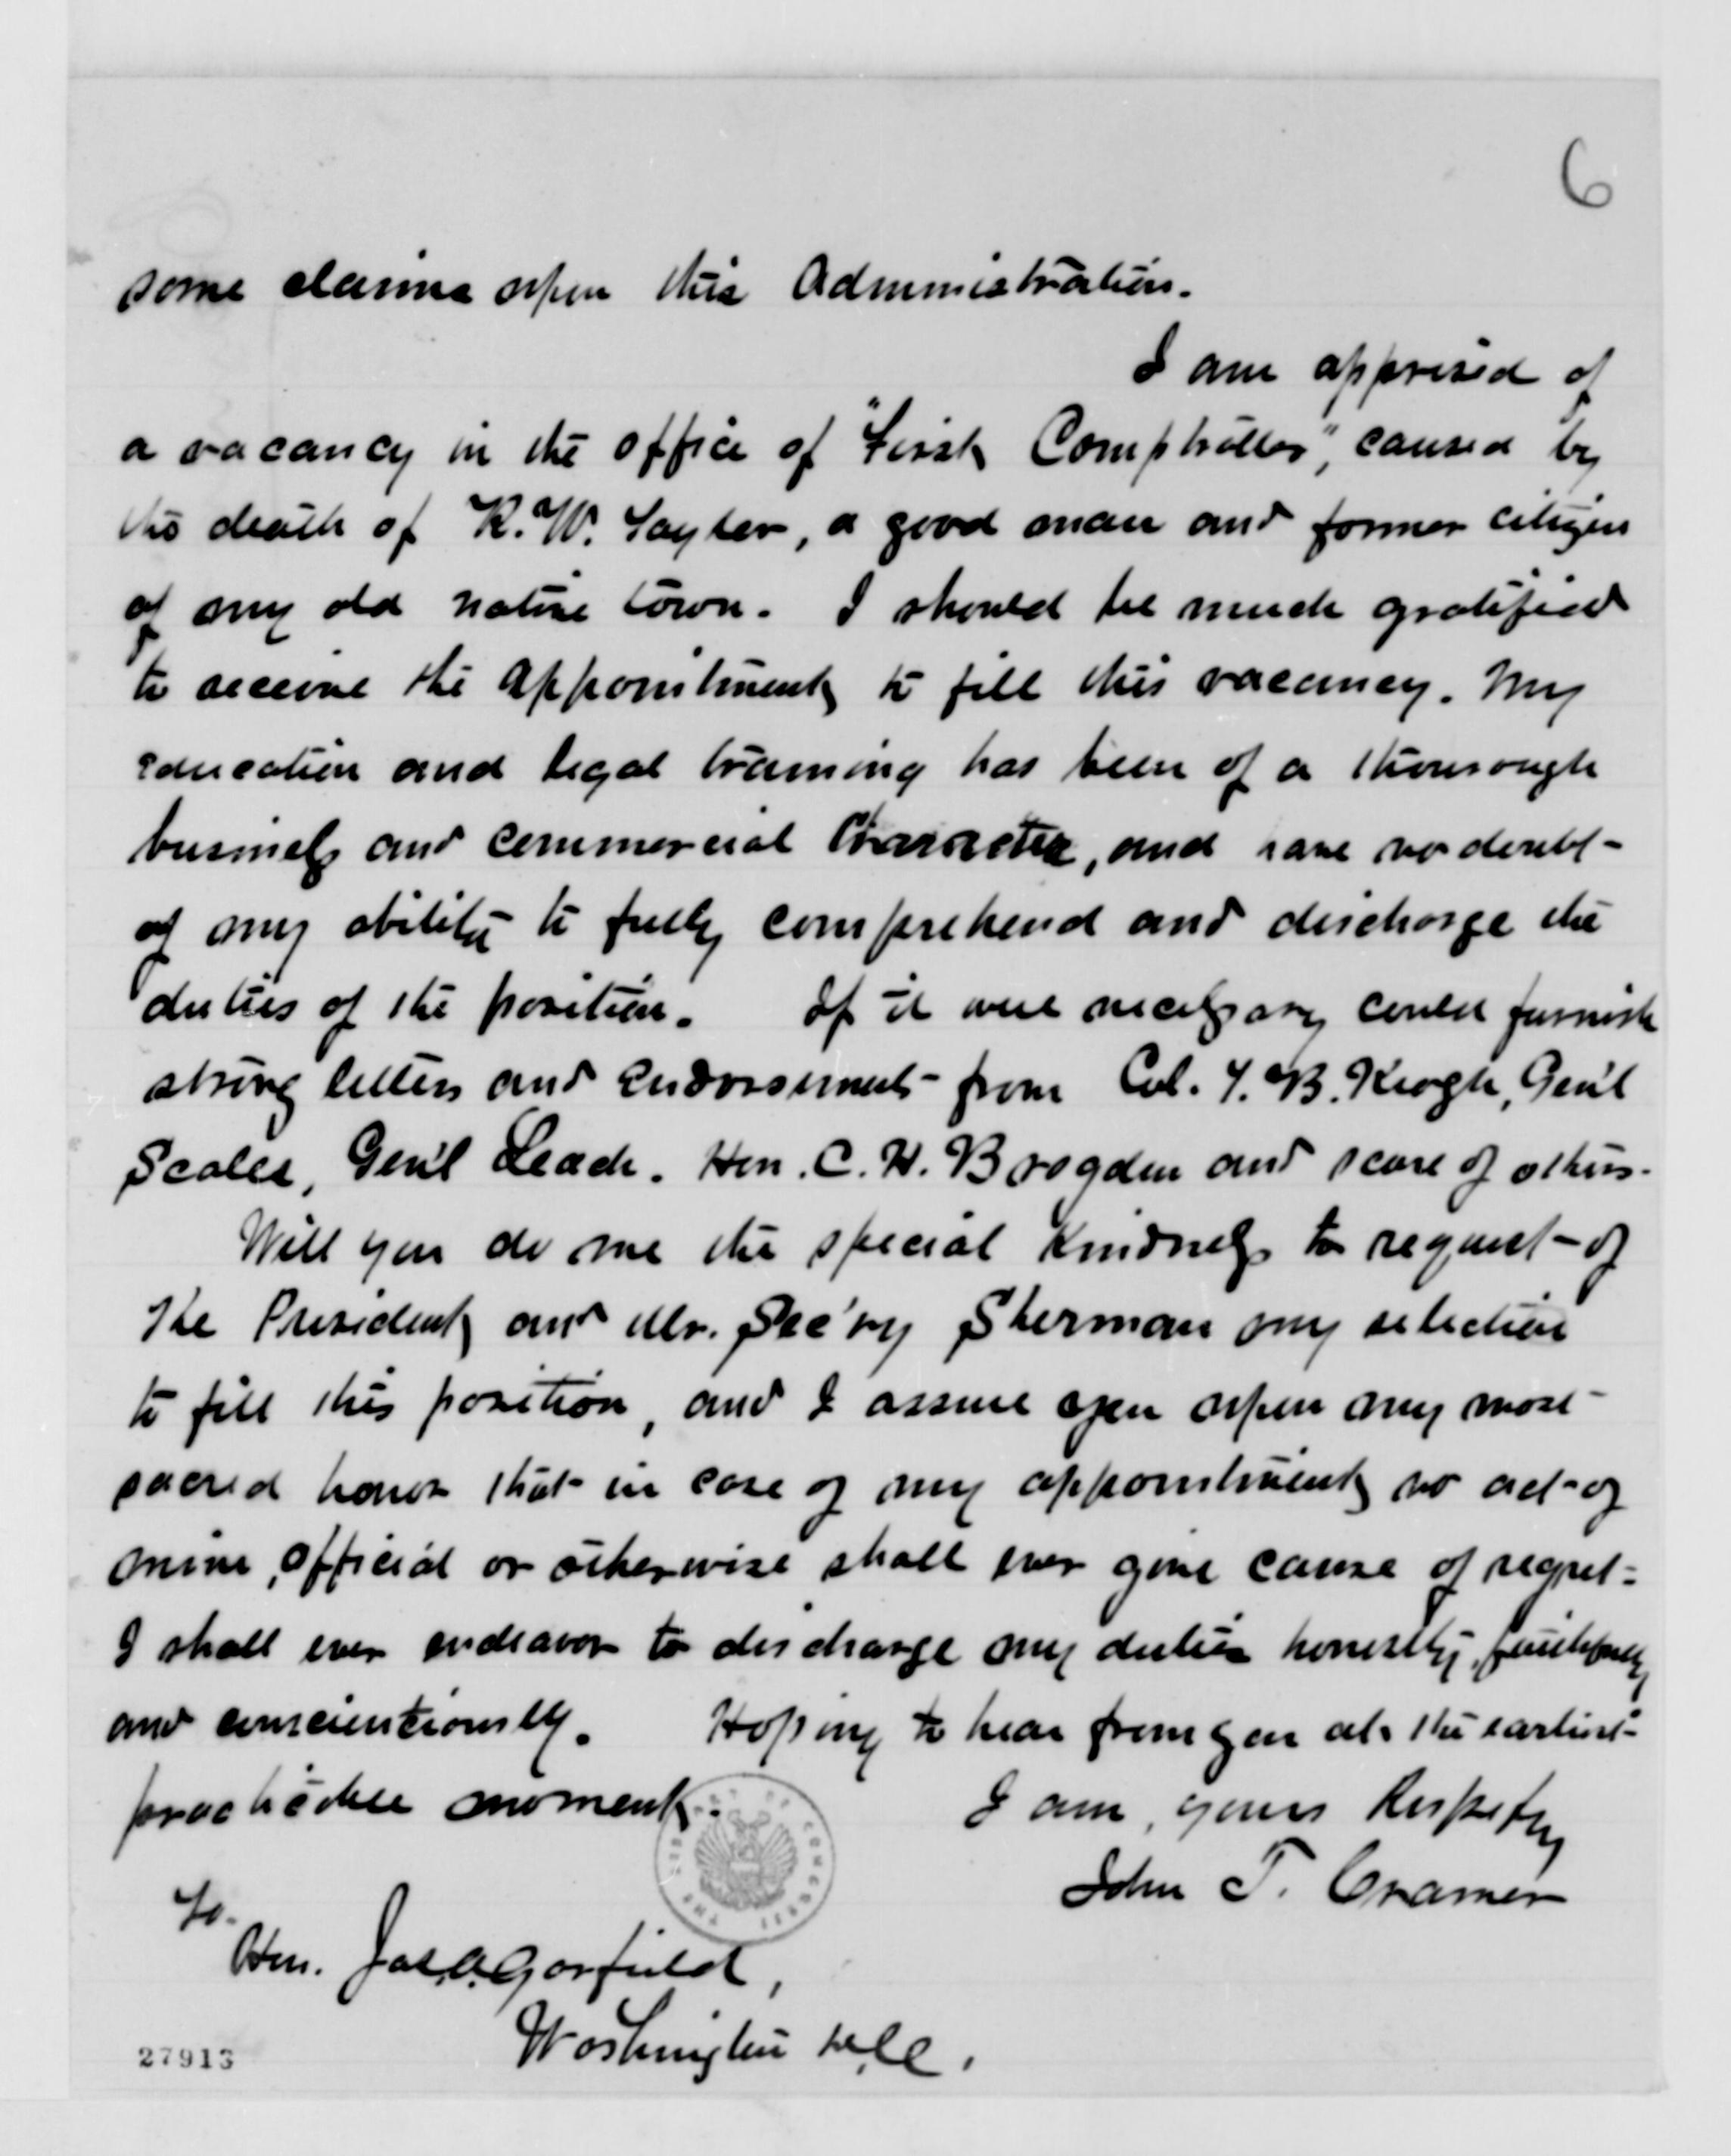 6
some claims upon this Administration.
I am apprised of
a vacancy in the office of "First Comptroller", caused by
the death of R. W. Taylor, a good man and former citizen
of my old native town. I should be much gratified
to receive the appointment to fill this vacancy. My
education and legal training has been of a thorough
business and commercial Character, and have no doubt
of my ability to fully comprehend and discharge the
duties of the position. If it were necessary could furnish
strong letters and Endorsements from Col. T. B. Keogh, Gen'l
Scales, Gen'l Leach. Hon. C. H. Brogden and score of others.
Will you do me the special Kindness to request of
the President and Mr. Sec'ry Sherman my selection
to fill this position, and I assure you upon my most
sacred honor that in case of my appointment no act of
mine, official or otherwise shall ever give cause of regret.
I shall ever endeavor to discharge my duties honestly, faithfully
and conscientiously. Hoping to hear from you at the earliest
practicable moment.
I am, yours Respctfy
John T. Cramer
To.
Hon. Jas. A. Garfield,
Washington D.C.
THE LIBRARY OF CONGRESS
27913